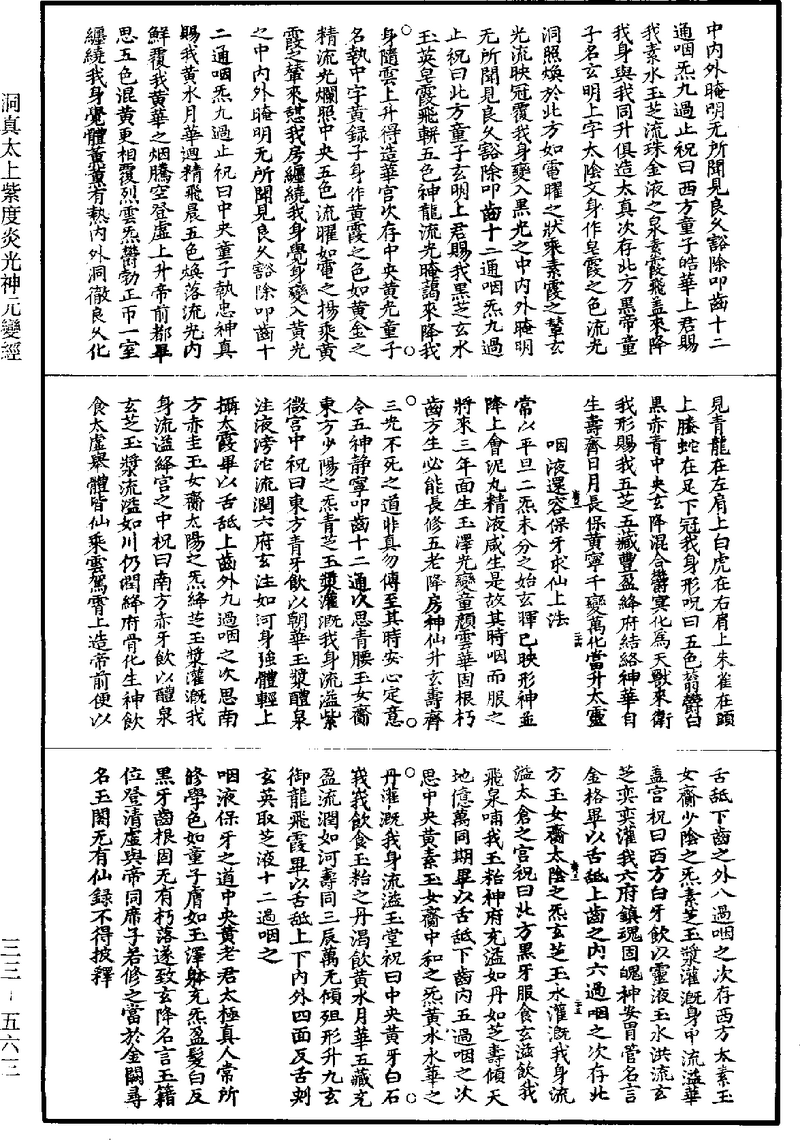 中内外晻明无所聞見良久豁除叩齒十二
通咽炁九過止祝曰西方童子皓華上君賜
我素水玉芝流珠金液之泉素霞飛蓋來降
我身與我同升俱造太真次存北方黑帝童
子名玄明上字太陰文身作皂霞之色流光
洞照煥於北方如電曜之狀乘素霞之輦玄
光流映冠覆我身變入黑光之中内外晻明
无所聞見良久豁除叩齒十二通咽炁九過
止祝曰北方童子玄明上君賜我黑芝玄水
玉英皂霞飛軿五色神龍流光晻藹來降我
身隨雲上升得造華宫次存中央黄光童子
名執中字黄録子身作黄霞之色如黄金之
精流光爛照中央五色流曜如電之揚乘黄
霞之輦來憩我房纏繞我身覺身變入黄光
之中内外晻明无所聞見良久豁除叩齒十
二通咽炁九過止祝曰中央童子執忠神真
賜我黄水月華迴精飛晨五色焕落流光内
鮮覆我黄華之烟騰空登虛上升帝前都畢
思五色混黄更相覆烈雲炁欝勃正帀一室
纏繞我身覺體薫薫有熱内外洞徹良久化
見青龍在左肩上白虎在右肩上朱雀在頭
上螣蛇在足下冠我身形呪曰五色蓊欝白
黑赤青中央玄降混合欝冥化爲天獸來衛
我形賜我五芝五藏豐盈絳府結絡神華自
生壽齊日月長保黄寧千變萬化當升太靈
咽液還容保牙求仙上法
常以平旦二炁未分之始玄暉已映形神並
降上會泥丸精液咸生是故其時咽而服之
將來三年面生玉澤光變童顔雲華固根朽
齒方生必能長修五老降房神仙升玄壽齊
三光不死之道非真勿傳至其時安心定意
令五神静寧叩齒十二通次思青腰玉女齎
東方少陽之炁青芝玉漿灌溉我身流溢紫
微宫中祝曰東方青牙飲以朝華玉漿醴泉
注液滂沱流潤六府玄注如河身強體輕上
攝太霞畢以舌舐上齒外九過咽之次思南
方赤圭玉女齎太陽之炁絳芝玉漿灌溉我
身流溢絳宫之中祝曰南方赤牙飲以醴泉
玄芝玉漿流溢如川仍閏絳府骨化生神飲
食太虛舉體皆仙乘雲駕霄上造帝前便以
舌舐下齒之外八過咽之次存西方太素玉
女齎少陰之炁素芝玉漿灌溉身中流溢華
蓋宫祝曰西方白牙飲以靈液玉水洪流玄
芝奕奕灌我六府鎮魂固魄神安胃管名言
金格畢以舌舐上齒之内六過咽之次存北
方玉女齎太陰之炁玄芝玉水灌溉我身流
溢太倉之宫祝曰北方黑牙服食玄滋飲我
飛泉哺我玉粘神府充溢如丹如芝壽傾天
地億萬同期畢以舌舐下齒内五過咽之次
思中央黄素玉女齎中和之炁黄水水華之
丹灌溉我身流溢玉堂祝曰中央黄牙白石
峩峩飲食玉粭之丹渴飲黄水月華五藏充
盈流潤如河壽同三辰萬无傾殂形升九玄
御龍飛霞畢以舌舐上下内外四面反舌刺
玄英取芝液十二過咽之
咽液保牙之道中央黄老君太極真人常所
修學色如童子膚如玉澤躰充炁盈髮白反
黑牙齒根固无有朽落遂致玄降名言玉籍
位登清虛與帝同席子若修之當於金闕尋
名玉閣无有仙録不得披釋
洞真太上紫度炎光神元變經
三三－五六三